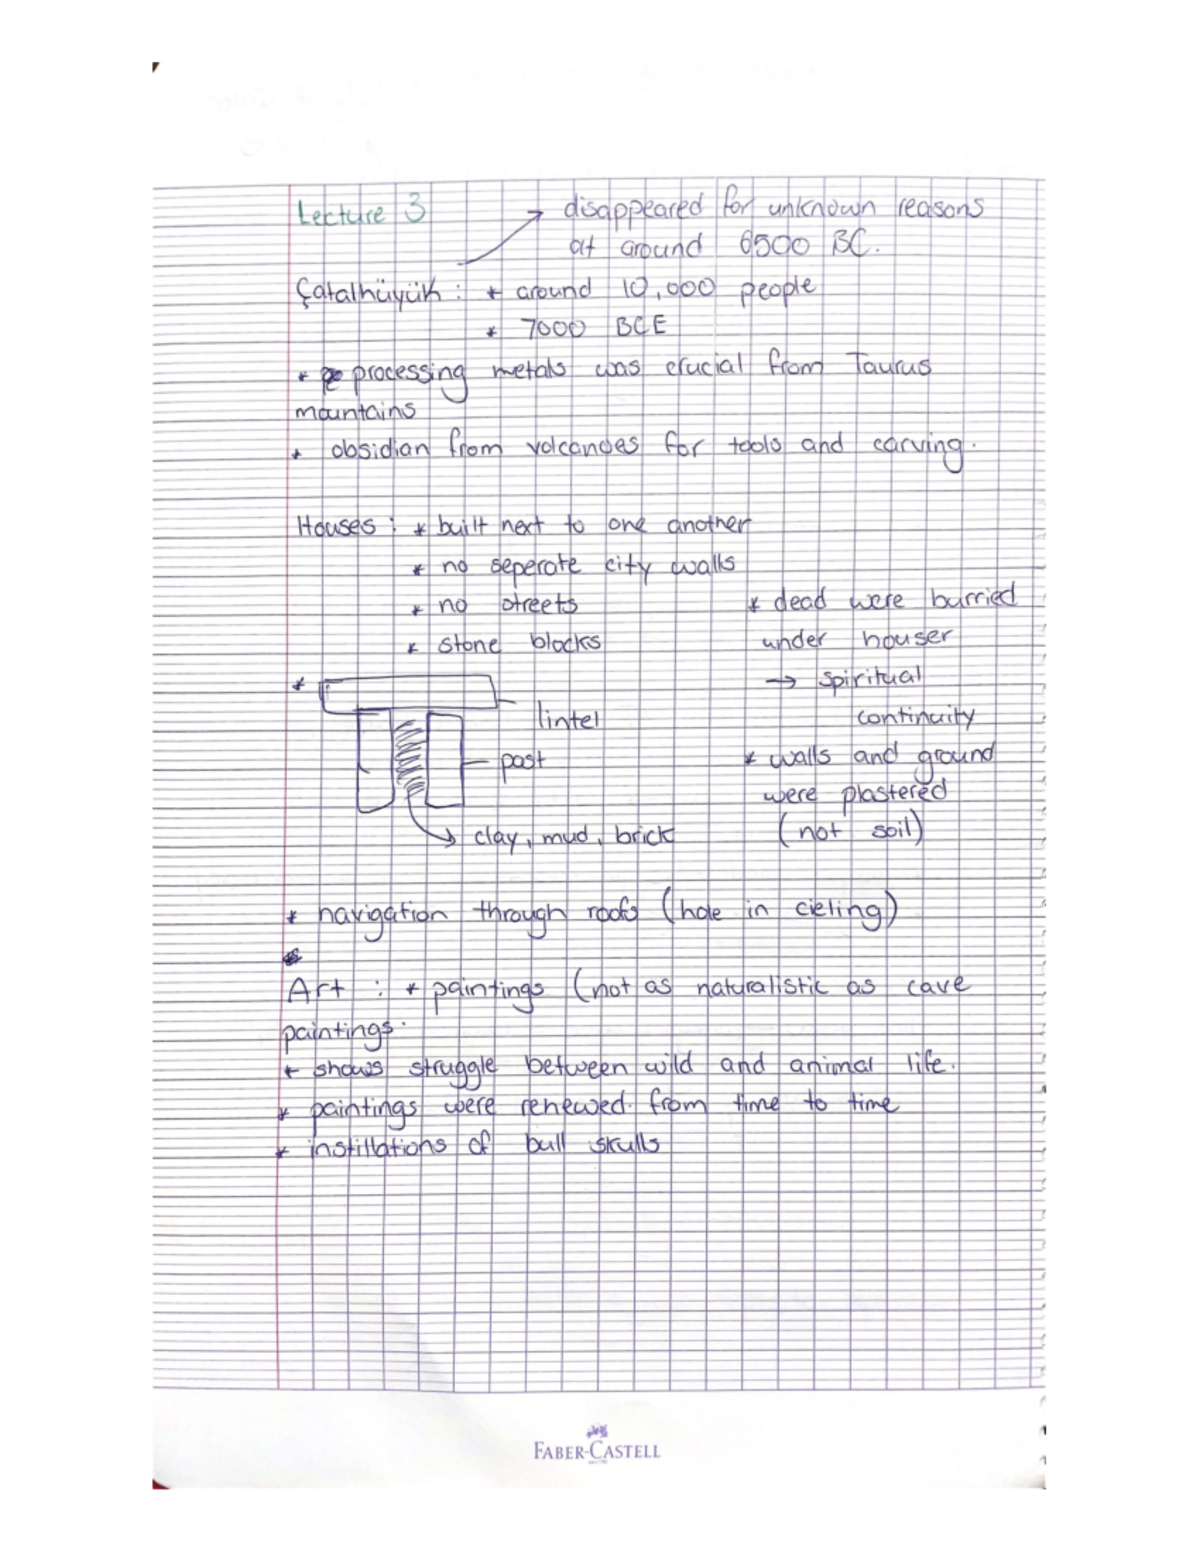 Lecture 3
→ disappeared for unknown reasons
at around 6500 BC.
Çatalhüyük : * around 10,000 people
* 7000 BCE
* processing metals was crucial from Taurus
mountains
* obsidian from volcanoes for tools and carving.
Houses : * built next to one another
* no seperate city walls
* no streets
* stone blocks
* dead were burried
under houser
→ spiritual
continuity
* walls and ground
were plastered
(not soil)
*
lintel
post
clay, mud, brick
* navigation through roofs (hole in cieling)
Art : * paintings (not as naturalistic as cave
paintings.
* shows struggle between wild and animal life.
* paintings were renewed from time to time
* instillations of bull skulls
FABER-CASTELL